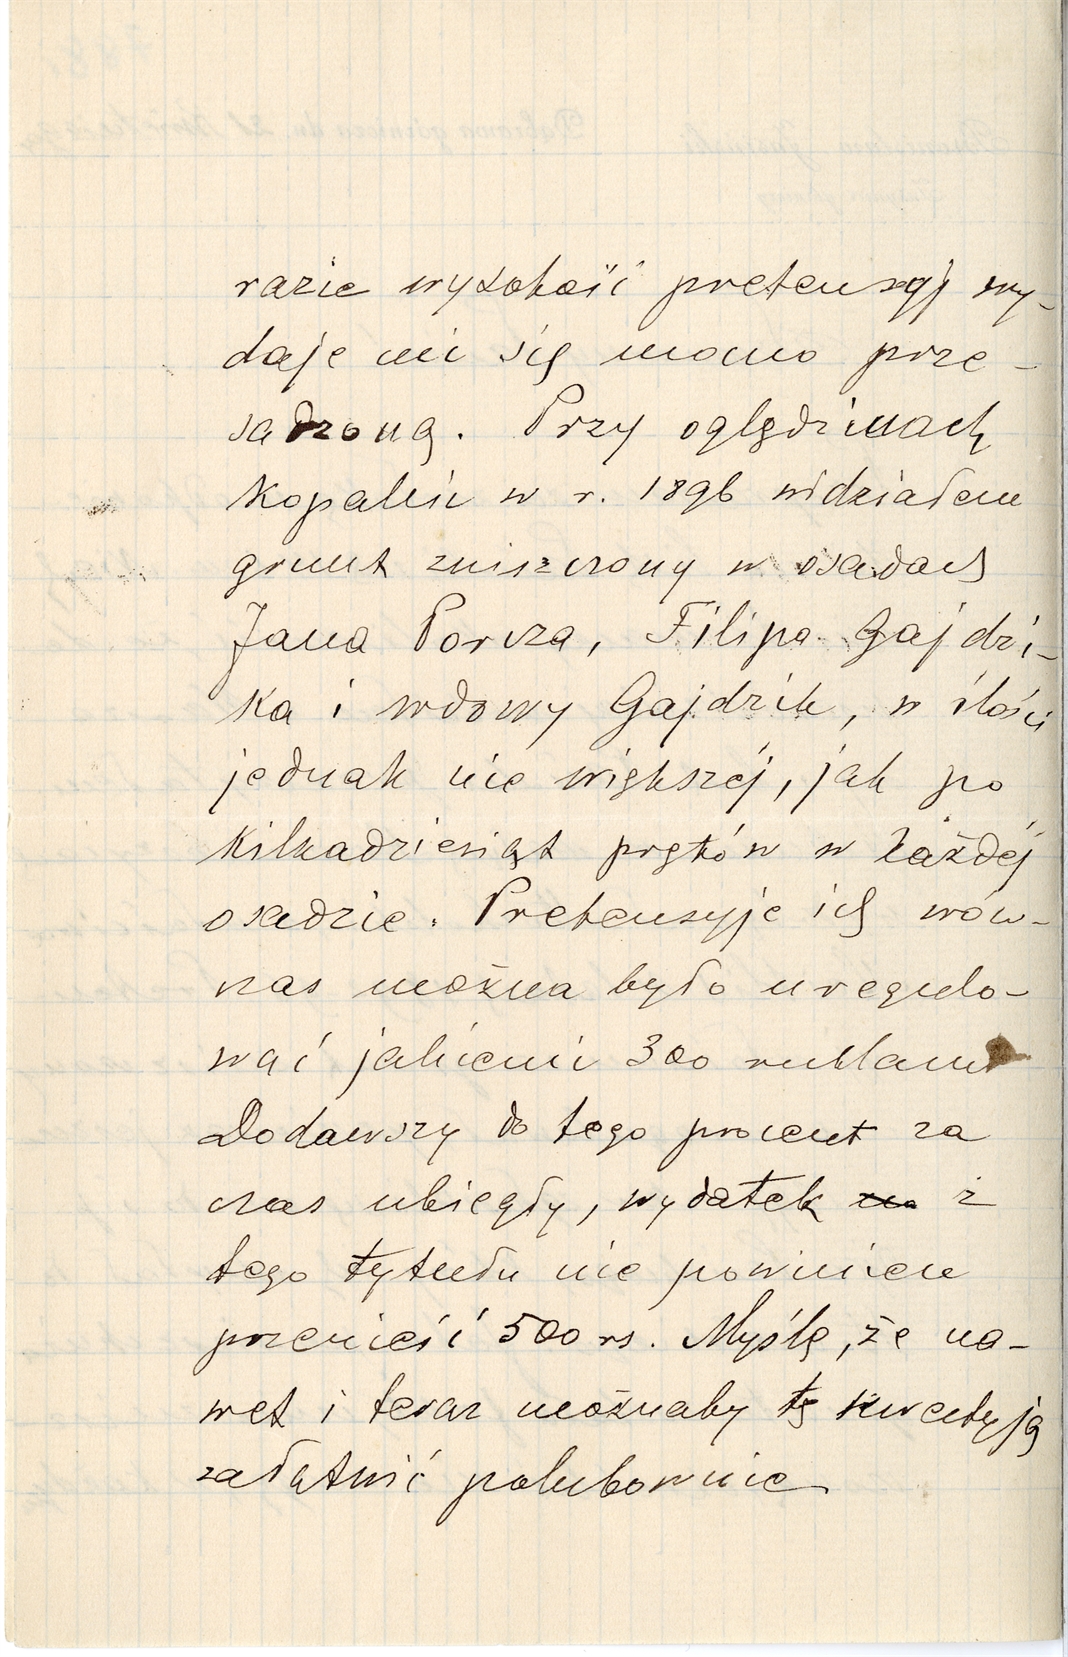 razie wysokość pretensyj wy-
daje mi się mocno prze-
sadzoną. Przy oględzinach
kopalń w r. 1896 widziałem
grunt zniszczony w osadach
Jana Porcza, Filipa Gajdzi-
ka i wdowy Gajdzik, w ilości
jednak nie większéj, jak po
kilkadziesiąt prętów w każdéj
osadzie. Pretensyje ich wów-
czas można było uregulo-
wać jakiemi 300 rublami
Dodawszy do tego procent za
czas ubiegły, wydatek z
tego tytułu nie powinien
przenieść 500 rs. Myślę, że na-
wet i teraz możnaby tę kwestyję
załatwić polubownie